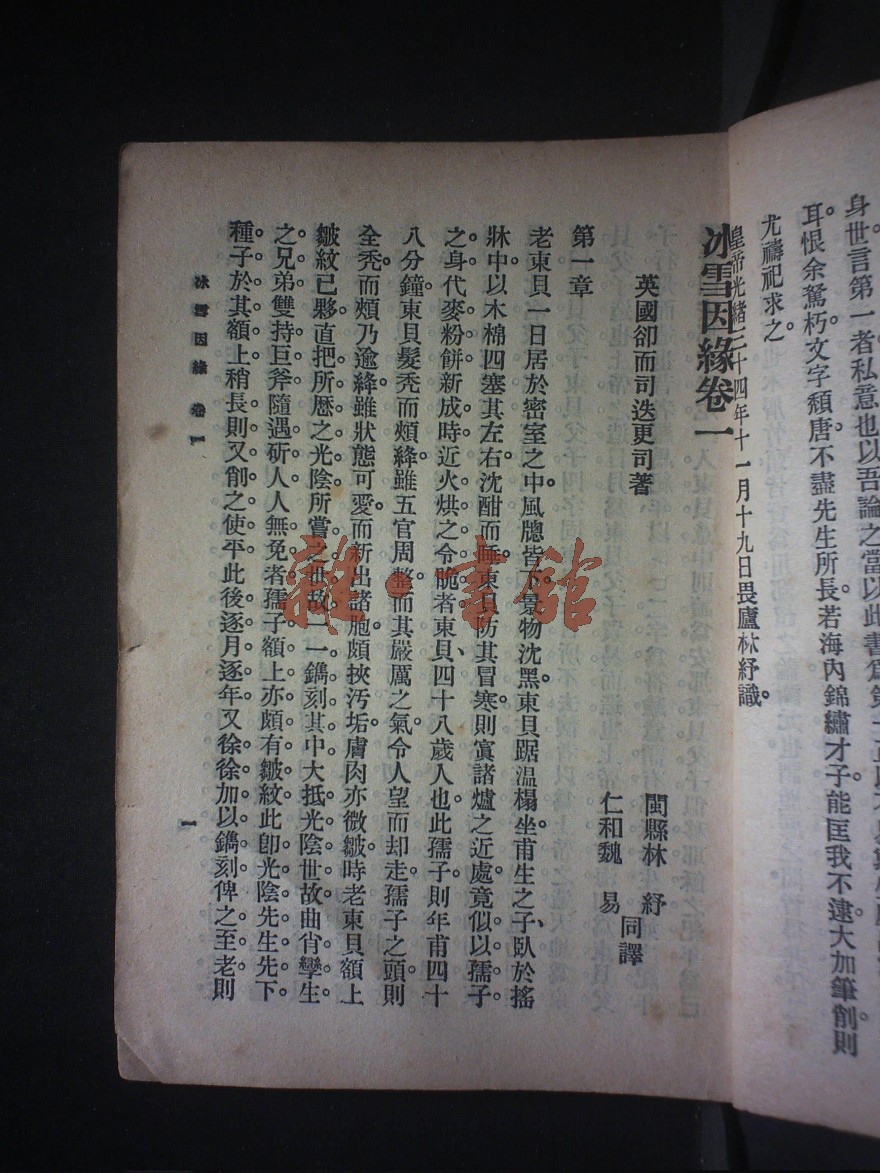 身世言第一者私意也以吾論之當以此書爲第一
耳恨余駑朽文字頹唐不盡先生所長若海內錦繡才子能匡我不逮大加筆削則
尤禱祀求之
皇帝光緒三十四年十一月十九日畏廬林紓識
冰雪因緣卷一
英國卻而司迭更司著
閩縣林 紓
仁和魏 易
同譯
第一章
老東貝一日居於密室之中風牕皆下景物沈黑東貝踞温榻坐甫生之子臥於搖
牀中以木棉四塞其左右沈酣而睡東貝防其冒寒則寘諸爐之近處竟似以孺子
之身代麥粉餅新成時近火烘之令脆者東貝四十八歲人也此孺子則年甫四十
八分鐘東貝髮禿而頰絳雖五官周整而其嚴厲之氣令人望而却走孺子之頭則
全禿而頰乃逾絳雖狀態可愛而新出諸胞頗挾汚垢膚肉亦微皺時老東貝額上
皺紋已夥直把所歷之光陰所嘗之世故一一鐫刻其中大抵光陰世故曲肖孿生
之兄弟雙持巨斧隨遇斫人人無免者孺子額上亦頗有皺紋此卽光陰先生先下
種子於其額上稍長則又削之使平此後逐月逐年又徐徐加以鐫刻俾之至老則
冰雪因緣 卷一
一
雜·書館